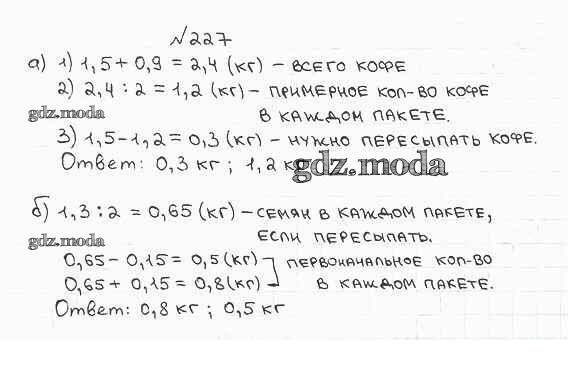 №227
а) 1) 1,5 + 0,9 = 2,4 (кг) – всего кофе
2) 2,4 : 2 = 1,2 (кг) – примерное кол-во кофе
gdz.moda
в каждом пакете.
3) 1,5 – 1,2 = 0,3 (кг) – нужно пересыпать кофе.
Ответ: 0,3 кг ; 1,2 кг
gdz.moda
б) 1,3 : 2 = 0,65 (кг) – семян в каждом пакете,
gdz.moda
если пересыпать.
0,65 – 0,15 = 0,5 (кг) первоначальное кол-во
0,65 + 0,15 = 0,8 (кг) в каждом пакете.
Ответ: 0,8 кг ; 0,5 кг